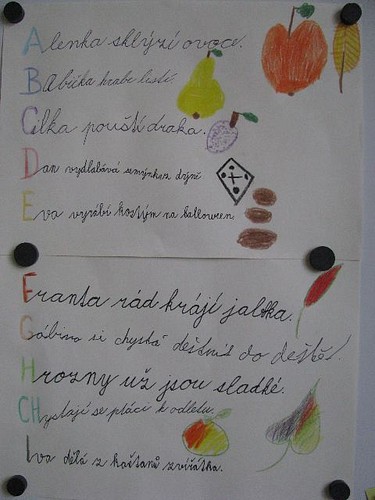 Alenka sklízí ovoce.
Babička hrabe listí.
Cilka pouští draka.
Dan vydlabává semínka z dýně
Eva vyrábí kostým na halloween.
Franta rád krájí jablka.
Gábina si chystá deštník do deště.
Hrozny už jsou sladké.
Chystají se ptáci k odletu.
Iva dělá z kaštanů zvířátka.